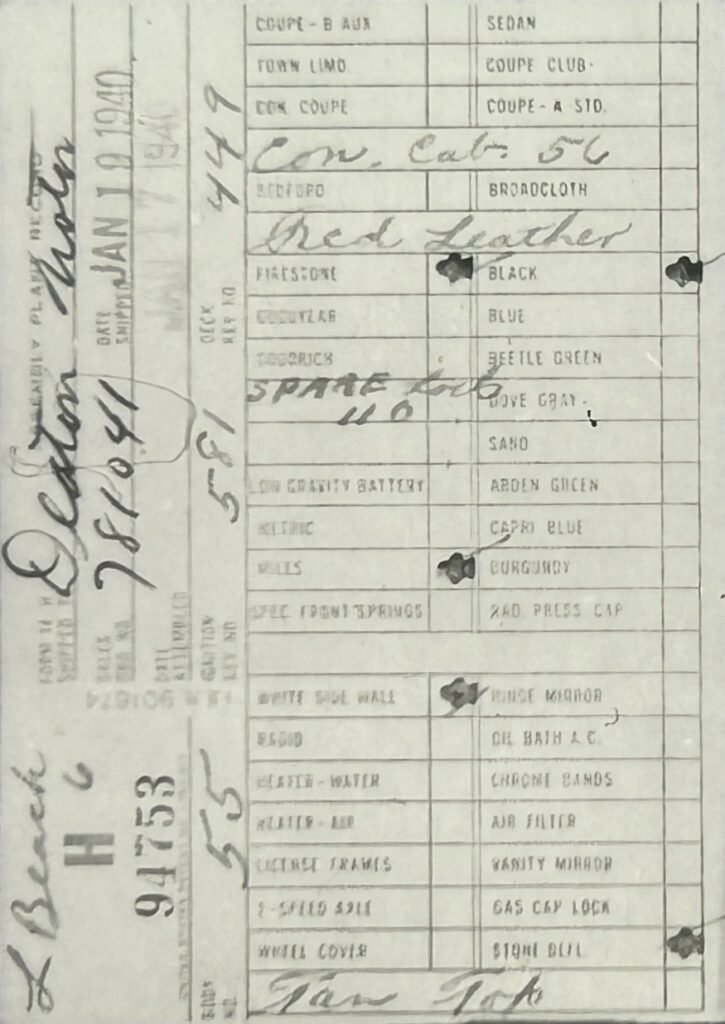 L Beach
H 6
94753
Deaton Motor
781041
DATE SHIPPED JAN 19 1940
DATE ASSEMBLED JAN 17 1940
55
IGNITION KEY NO 581
DECK KEY NO 449
COUPE - B AUX SEDAN
TOWN LIMO COUPE CLUB
CON COUPE COUPE - A STD.
Con. Cab. 56
BEDFORD BROADCLOTH
Red Leather
FIRESTONE BLACK
GOODYEAR BLUE
GOODRICH BEETLE GREEN
SPARE Lock DOVE GRAY
110
SAND
LOW GRAVITY BATTERY ARDEN GREEN
METRIC CAPRI BLUE
MILES BURGUNDY
SPEC FRONT SPRINGS RAD PRESS CAP
WHITE SIDE WALL HINGE MIRROR
RADIO OIL BATH A.C.
HEATER - WATER CHROME BANDS
HEATER - AIR AIR FILTER
LICENSE FRAMES VANITY MIRROR
2-SPEED AXLE GAS CAP LOCK
WHEEL COVER STONE DEFL
Tan Top